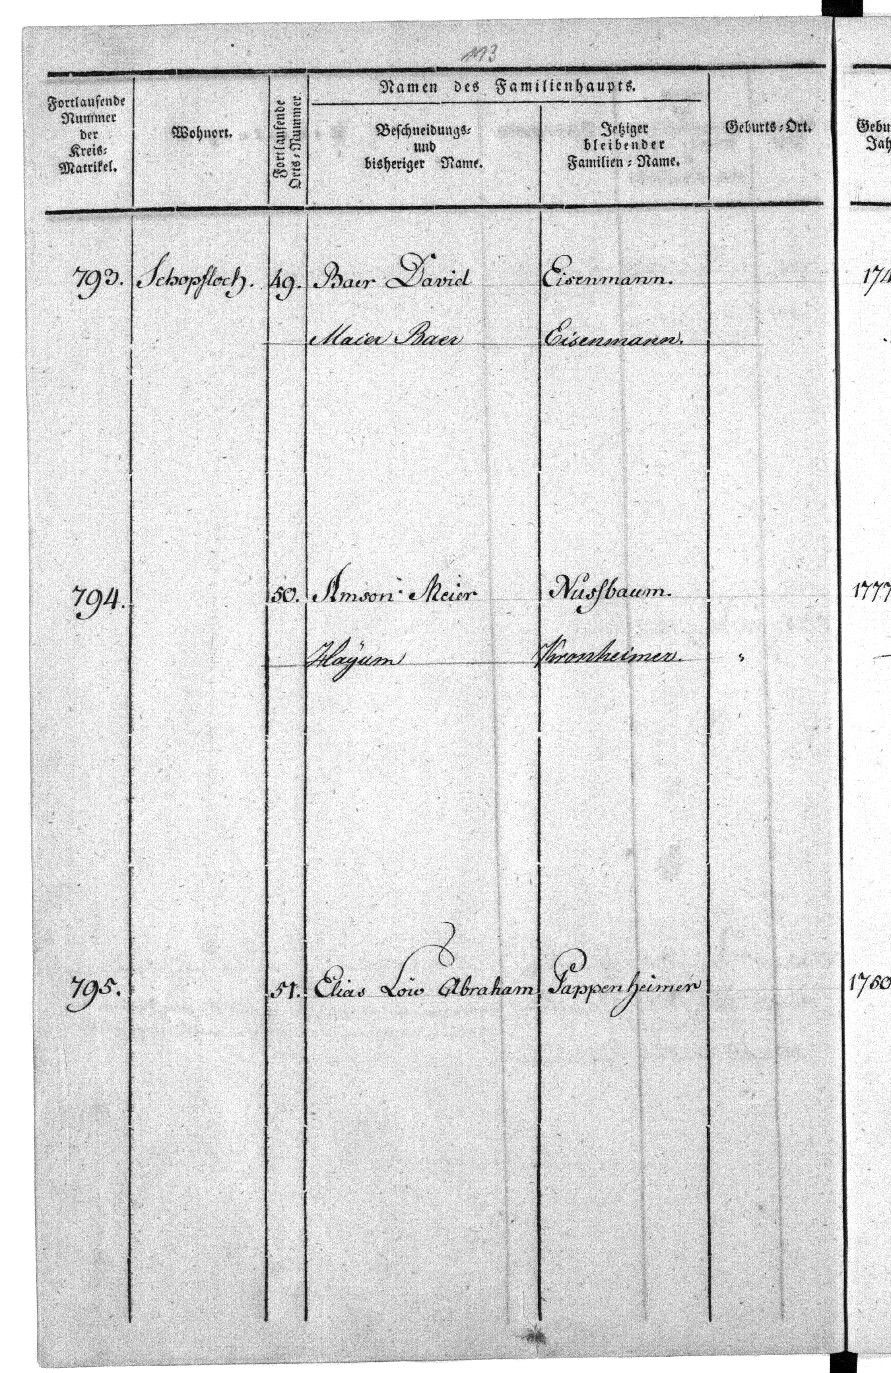 113
Namen des Familienhaupts.
Fortlaufende
Nummer
der
Kreis=
Matrikel.
Wohnort.
Fortlaufende
Orts=Nummer
Beschneidungs=
und
bisheriger Name.
Jetziger
bleibender
Familien=Name.
Geburts=Ort.
793. Schopfloch. 49. Baer David Eisenmann. 174
Maier Baer Eisenmann.
794. 50. Amson Meier Nussbaum. 1777
Haÿum Kronheimer. "
795. 51. Elias Löw Abraham Pappenheimer 1750